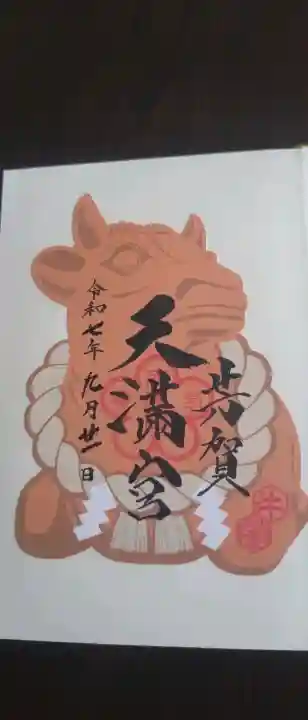 芳賀
天滿宮
令和七年九月廿一日